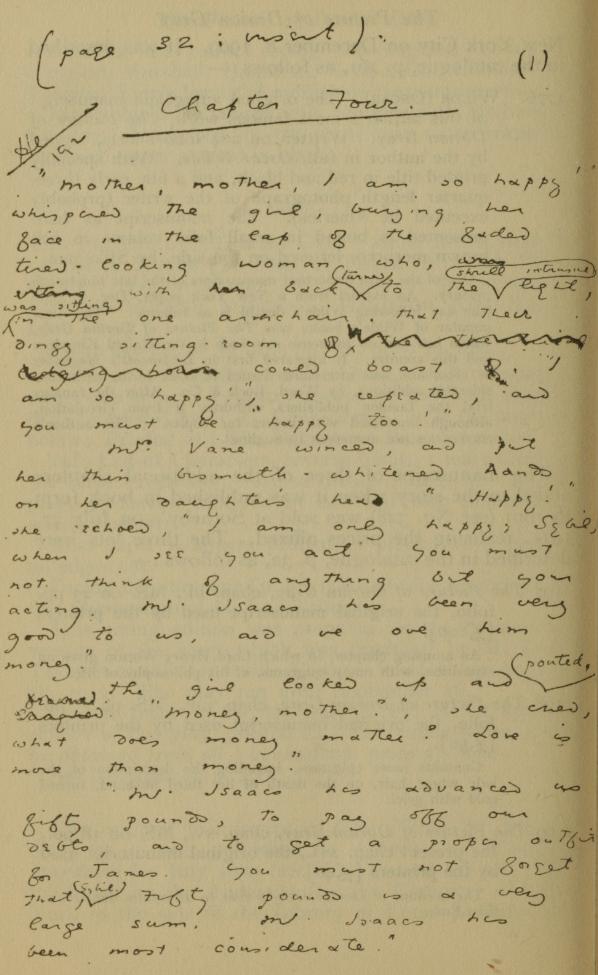 (page 32 : insert).
(1)
Chapter Four.
192
"Mother, mother, I am so happy!"
whispered the girl, burying her
face in the lap of the faded
tired-looking woman who, was
(shrill intrusive)
(turned)
sitting with her back to the light,
was sitting
in the one armchair that their
dingy sitting-room
could boast of. "I
am so happy!", she repeated, "and
you must be happy too!"
Mrs. Vane winced, and put
her thin bismuth-whitened hands
on her daughter's head "Happy!"
she echoed, "I am only happy, Sybil,
when I see you act. You must
not think of anything but your
acting. Mr. Isaacs has been very
good to us, and we owe him
money."
(pouted.
The girl looked up and
laughed. "Money, mother?", she cried,
what does money matter? Love is
more than money."
"Mr. Isaacs has advanced us
fifty pounds, to pay off our
debts, and to get a proper outfit
for James. You must not forget
that, (Sybil) Fifty pounds is a very
large sum. Mr. Isaacs has
been most considerate."